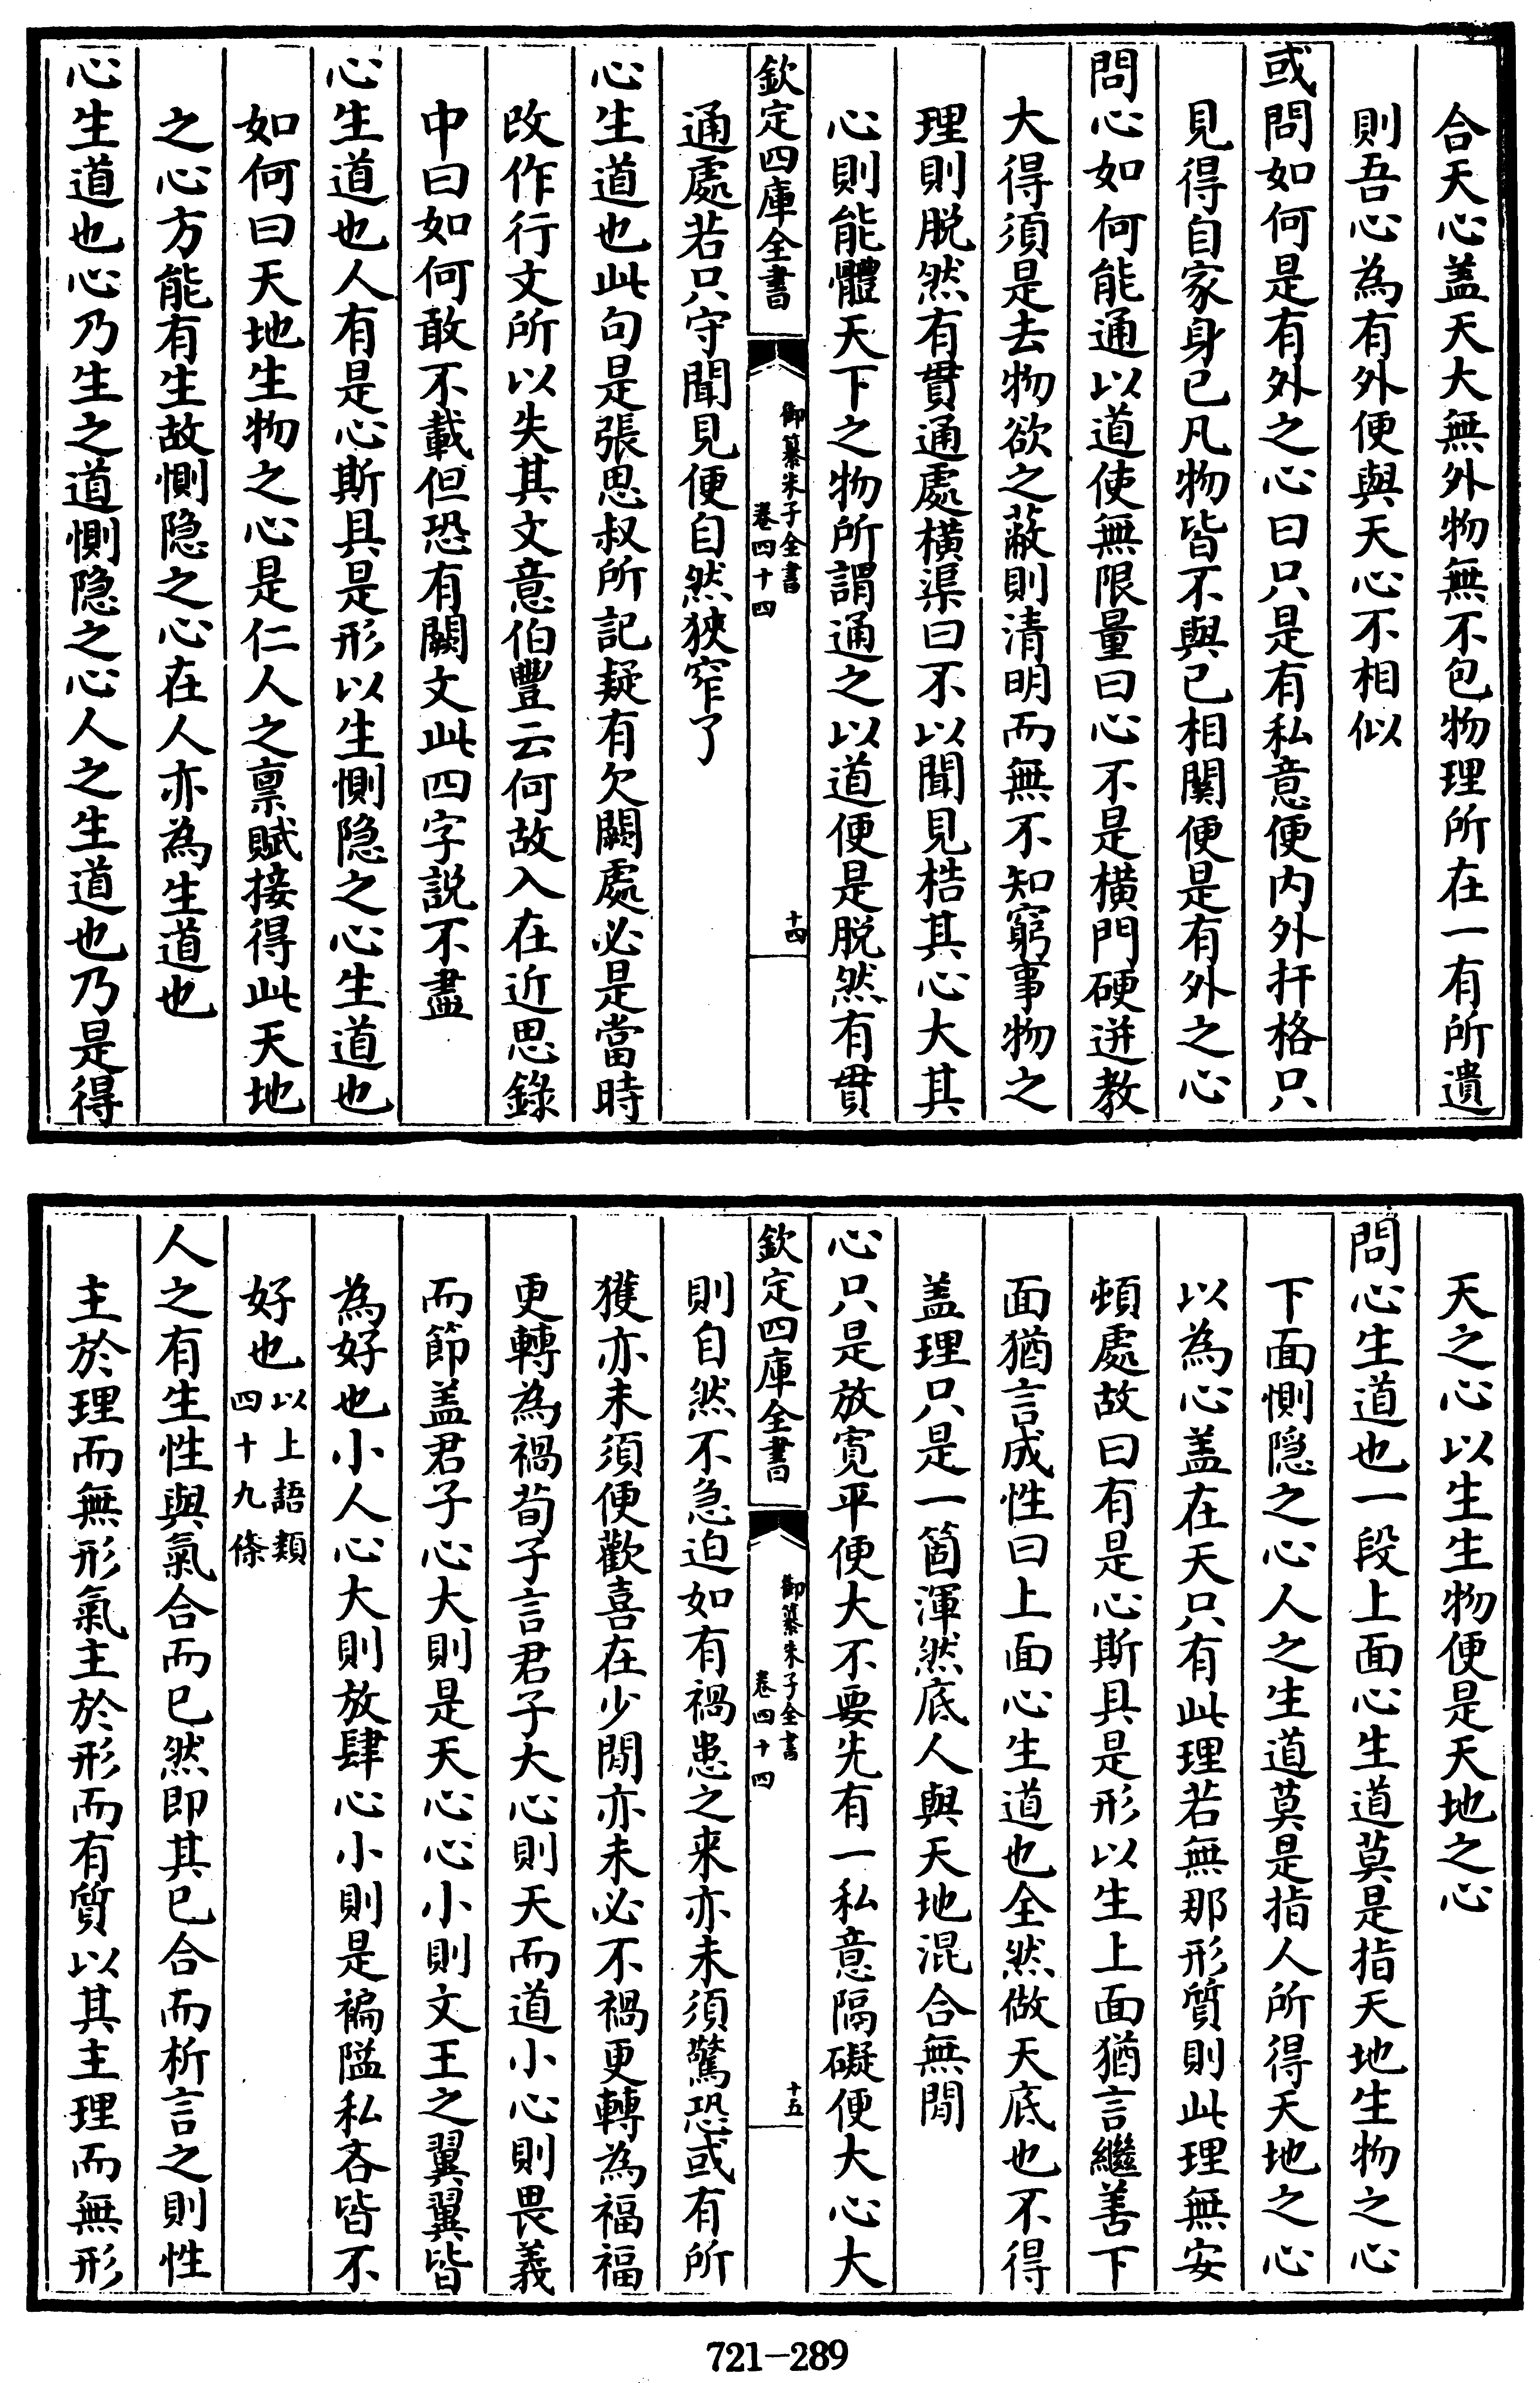 合天心盖天大無外物無不包物理所在一有所遺
則吾心為有外便與天心不相似
或問如何是有外之心曰只是有私意便内外扞格只
見得自家身已凡物皆不與已相闗便是有外之心
問心如何能通以道使無限量曰心不是橫門硬迸教
大得須是去物欲之蔽則清明而無不知窮事物之
理則脱然有貫通處橫渠曰不以聞見梏其心大其
心則能體天下之物所謂通之以道便是脱然有貫
欽定四庫全書
御纂朱子全書
卷四十四
十四
通處若只守聞見便自然狹窄了
心生道也此句是張思叔所記疑有欠闕處必是當時
改作行文所以失其文意伯豐云何故入在近思錄
中曰如何敢不載但恐有闕文此四字説不盡
心生道也人有是心斯具是形以生惻隐之心生道也
如何曰天地生物之心是仁人之禀賦接得此天地
之心方能有生故惻隐之心在人亦為生道也
心生道也心乃生之道惻隐之心人之生道也乃是得
天之心以生生物便是天地之心
問心生道也一段上面心生道莫是指天地生物之心
下面惻隐之心人之生道莫是指人所得天地之心
以為心盖在天只有此理若無那形質則此理無安
頓處故曰有是心斯具是形以生上面猶言繼善下
面猶言成性曰上面心生道也全然做天底也不得
盖理只是一箇渾然底人與天地混合無間
心只是放寛平便大不要先有一私意隔礙便大心大
欽定四庫全書
御纂朱子全書
卷四十四
十五
則自然不急迫如有禍患之来亦未須驚恐或有所
獲亦未須便歡喜在少間亦未必不禍更轉為福福
更轉為禍荀子言君子大心則天而道小心則畏義
而節盖君子心大則是天心心小則文王之翼翼皆
為好也小人心大則放肆心小則是褊隘私吝皆不
好也以上語類
四十九條
人之有生性與氣合而已然即其已合而析言之則性
主於理而無形氣主於形而有質以其主理而無形
721-289